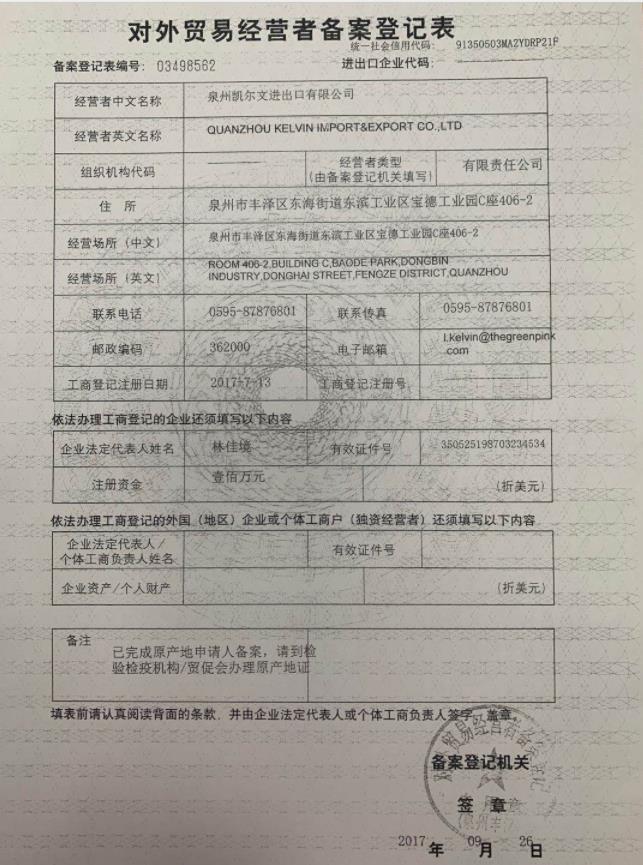 对外贸易经营者备案登记表
统一社会信用代码: 91350503MA2YDRP21F
备案登记表编号: 03498562 进出口企业代码:
经营者中文名称 泉州凯尔文进出口有限公司
经营者英文名称 QUANZHOU KELVIN IMPORT&EXPORT CO.,LTD
组织机构代码 经营者类型 (由备案登记机关填写) 有限责任公司
住 所 泉州市丰泽区东海街道东滨工业区宝德工业园C座406-2
经营场所（中文） 泉州市丰泽区东海街道东滨工业区宝德工业园C座406-2
经营场所（英文） ROOM 406-2,BUILDING C,BAODE PARK,DONGBIN
INDUSTRY,DONGHAI STREET,FENGZE DISTRICT,QUANZHOU
联系电话 0595-87876801 联系传真 0595-87876801
邮政编码 362000 电子邮箱 l.kelvin@thegreenpink
com
工商登记注册日期 2017-7-13 工商登记注册号
依法办理工商登记的企业还须填写以下内容
企业法定代表人姓名 林佳境 有效证件号 350525198703234534
注册资金 壹佰万元 (折美元)
依法办理工商登记的外国（地区）企业或个体工商户（独资经营者）还须填写以下内容
企业法定代表人/
个体工商负责人姓名 有效证件号
企业资产/个人财产 (折美元)
备注
已完成原产地申请人备案，请到检
验检疫机构/贸促会办理原产地证
填表前请认真阅读背面的条款，并由企业法定代表人或个体工商负责人签字、盖章。
备案登记机关
签 章
2017 年 09 月 26 日